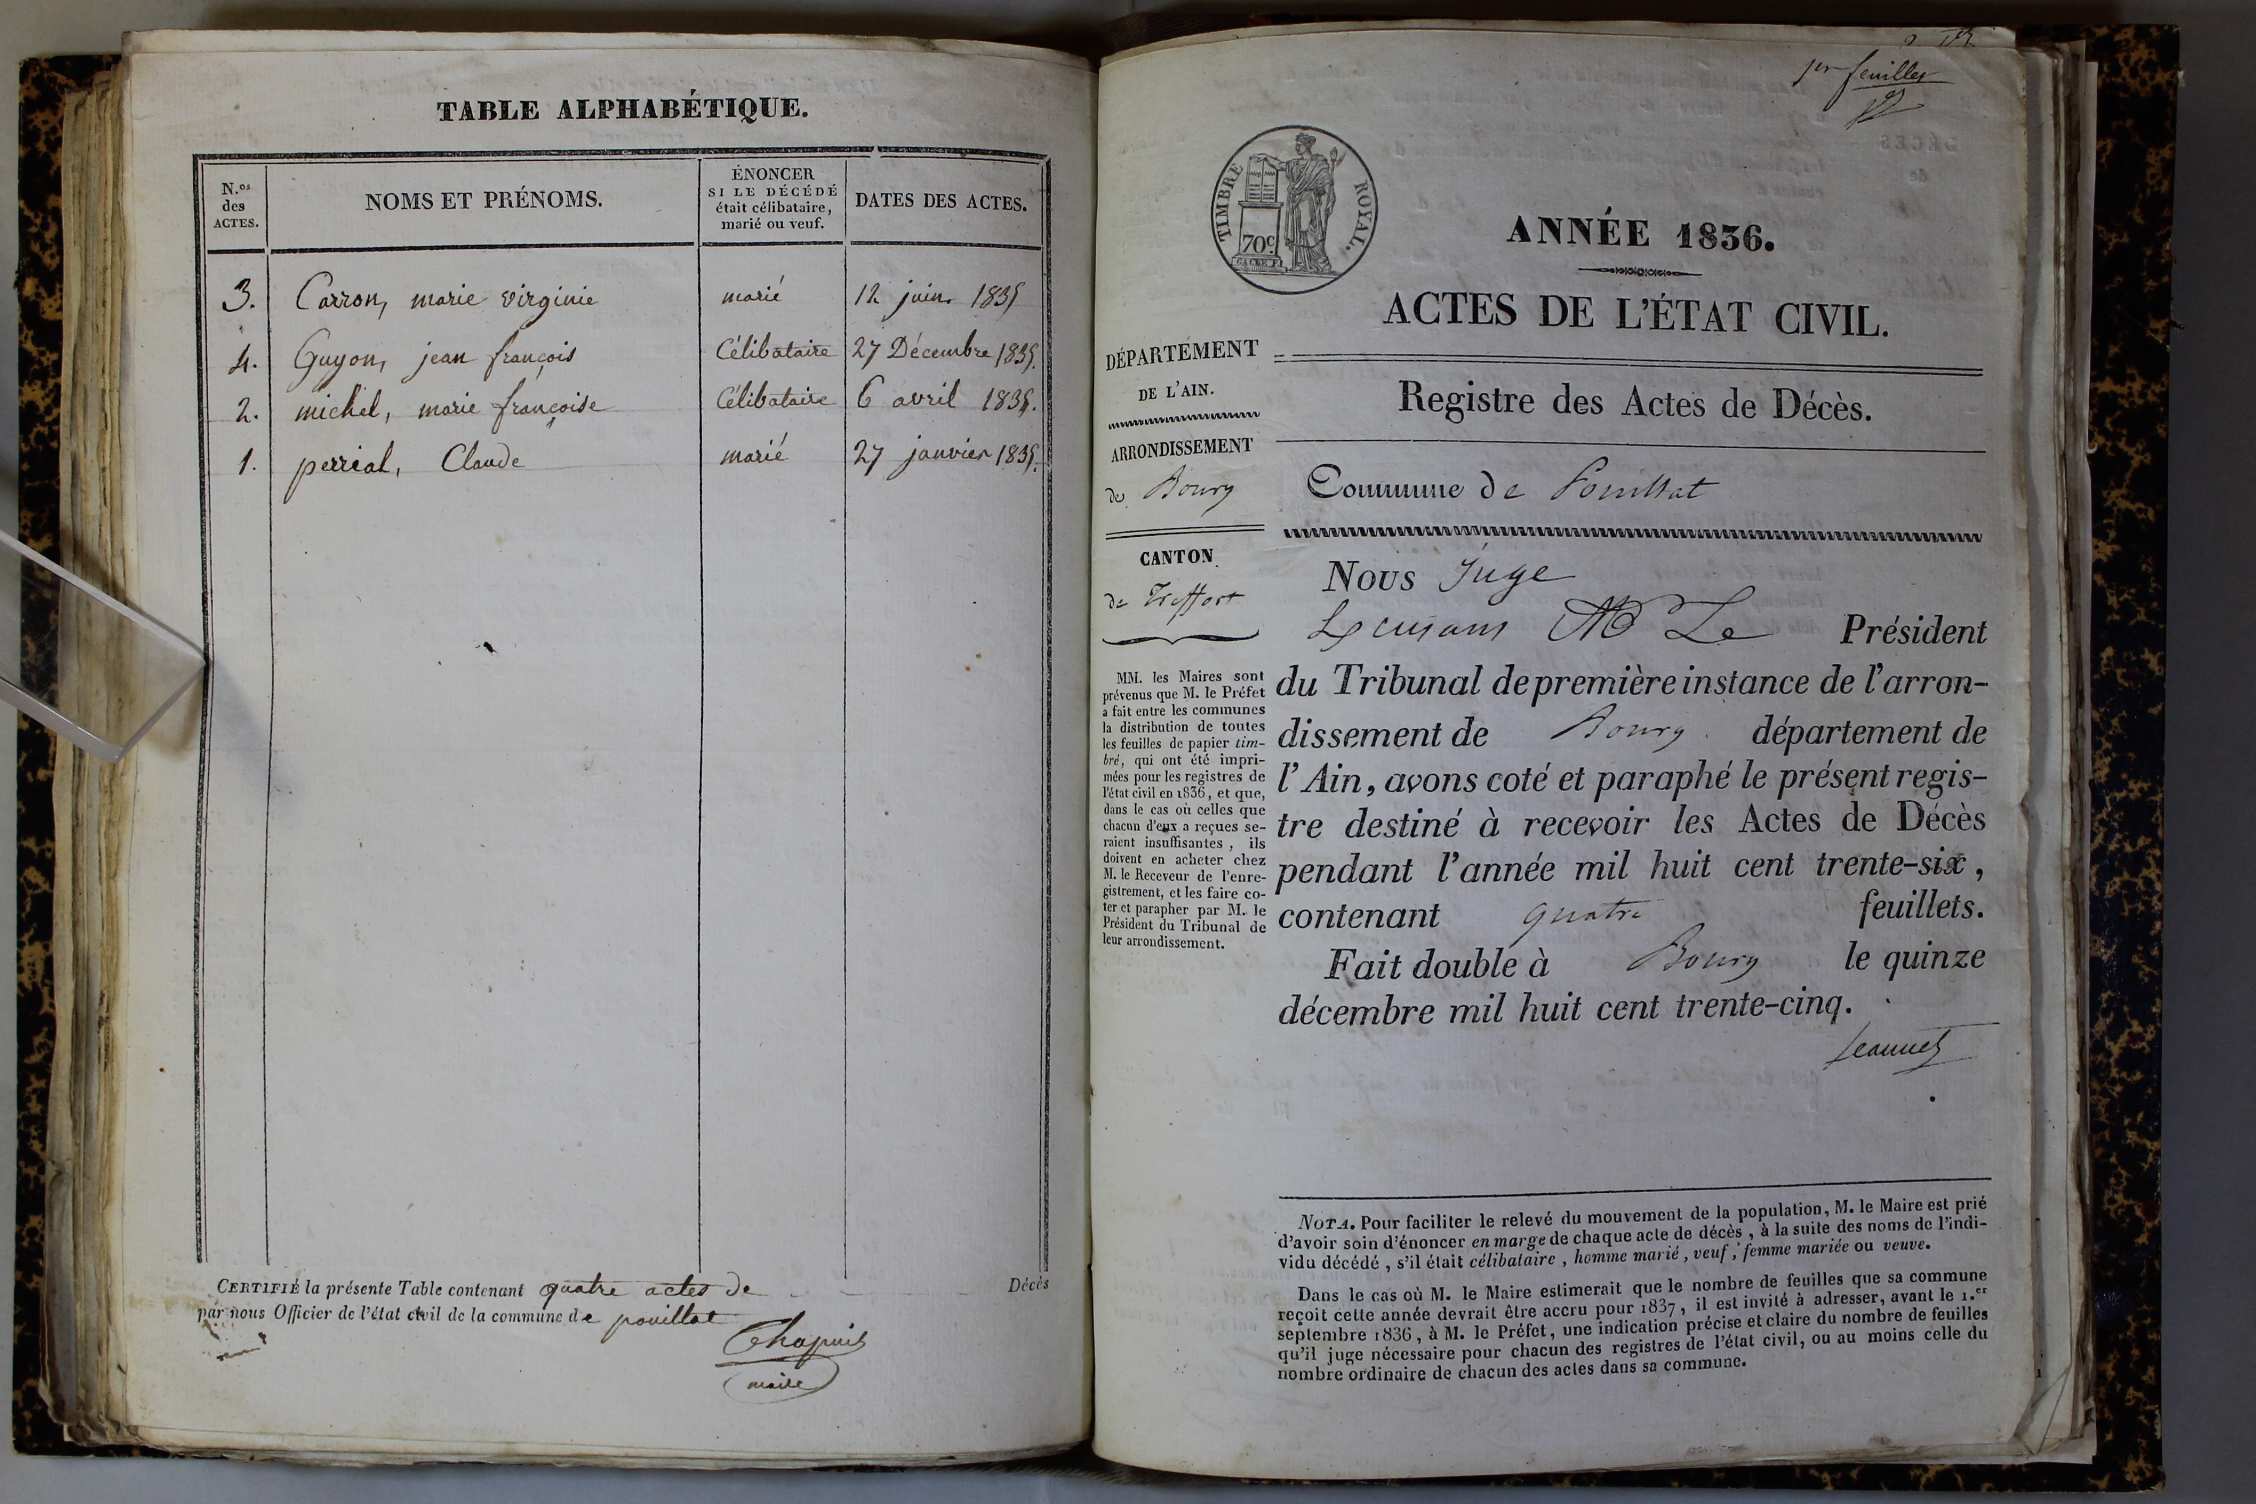 TABLE ALPHABÉTIQUE.
N.os des ACTES.
NOMS ET PRÉNOMS.
ÉNONCER SI LE DÉCÉDÉ était célibataire, marié ou veuf.
DATES DES ACTES.
3. Carron, marie virginie marié 12 juin 1835
4. Guyon, jean françois Célibataire 27 Décembre 1835.
2. michel, marie françoise Célibataire 6 avril 1835.
1. perrial, Claude marié 27 janvier 1835.
CERTIFIÉ la présente Table contenant quatre actes de Décès
par nous Officier de l'état civil de la commune de pouillat
Chapuis
maire
1er feuillet
TIMBRE ROYAL.
70c
ANNÉE 1836.
ACTES DE L'ÉTAT CIVIL.
Registre des Actes de Décès.
DÉPARTEMENT
DE L'AIN.
ARRONDISSEMENT
de Bourg
CANTON
de Treffort
MM. les Maires sont
prévenus que M. le Préfet
a fait entre les communes
la distribution de toutes
les feuilles de papier tim-
bré, qui ont été impri-
mées pour les registres de
l'état civil en 1836, et que,
dans le cas où celles que
chacun d'eux a reçues se-
raient insuffisantes, ils
doivent en acheter chez
M. le Receveur de l'enre-
gistrement, et les faire co-
ter et parapher par M. le
Président du Tribunal de
leur arrondissement.
Commune de Pouillat
Nous Juge
Président
du Tribunal de première instance de l'arron-
dissement de Bourg département de
l'Ain, avons coté et paraphé le présent regis-
tre destiné à recevoir les Actes de Décès
pendant l'année mil huit cent trente-six,
contenant quatre feuillets.
Fait double à Bourg le quinze
décembre mil huit cent trente-cinq.
Jeannet
NOTA. Pour faciliter le relevé du mouvement de la population, M. le Maire est prié
d'avoir soin d'énoncer en marge de chaque acte de décès, à la suite des noms de l'indi-
vidu décédé, s'il était célibataire, homme marié, veuf, femme mariée ou veuve.
Dans le cas où M. le Maire estimerait que le nombre de feuilles que sa commune
reçoit cette année devrait être accru pour 1837, il est invité à adresser, avant le 1.er
septembre 1836, à M. le Préfet, une indication précise et claire du nombre de feuilles
qu'il juge nécessaire pour chacun des registres de l'état civil, ou au moins celle du
nombre ordinaire de chacun des actes dans sa commune.